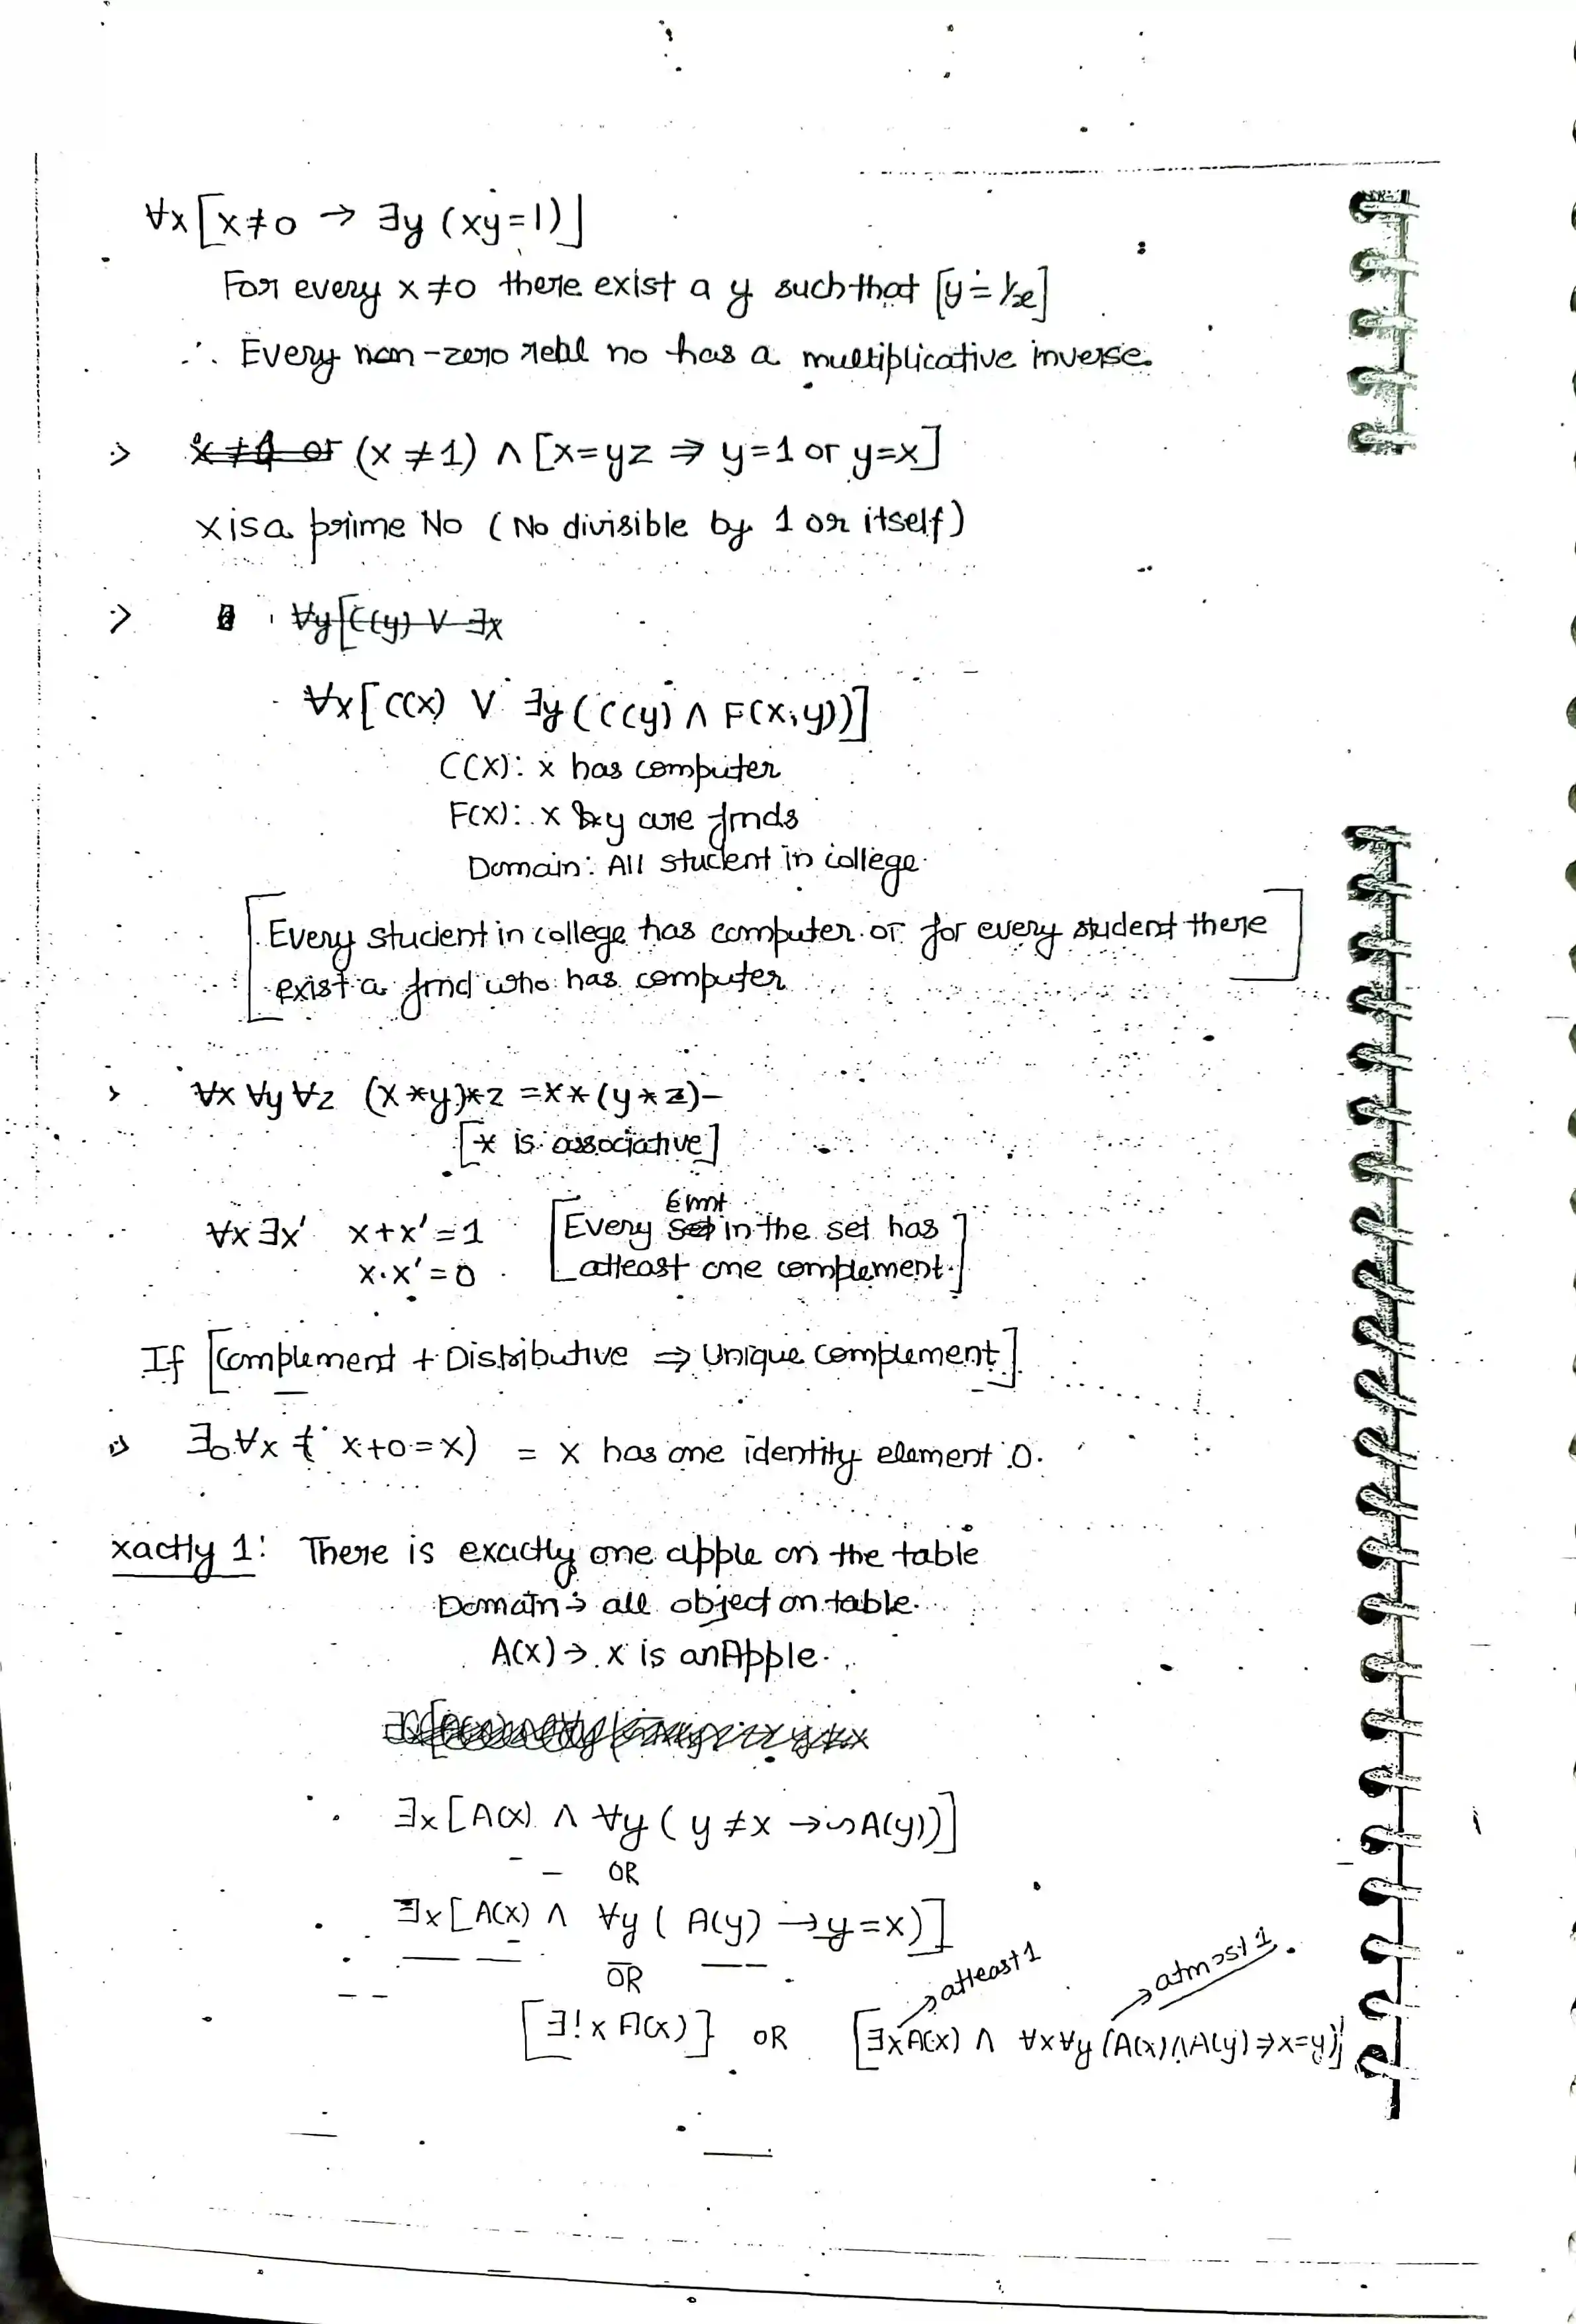 ∀x[x≠0 → ∃y (xy=1)]
For every x≠0 there exist a y such that [y = 1/x]
∴ Every non-zero real no has a multiplicative inverse.
(x≠1) ∧ [x=yz ⇒ y=1 or y=x]
x is a prime No (No divisible by 1 or itself)
∀y[C(y) ∨ ∃x
∀x[C(x) ∨ ∃y (C(y) ∧ F(x,y))]
C(x): x has computer
F(x): x & y are frnds
Domain: All student in college.
[Every student in college has computer or for every student there
exist a frnd who has computer]
∀x ∀y ∀z (x*y)*z = x*(y*z)
[* is associative]
Elmt
∀x ∃x' x+x'=1 [Every set in the set has
x.x'=0 atleast one complement.]
If [Complement + Distributive ⇒ Unique complement]
∃0 ∀x ( x+0=x) = x has one identity element 0.
xactly 1: There is exactly one apple on the table
Domain → all object on table.
A(x) → x is an Apple.
∃x[A(x) ∧ ∀y ( y≠x → ∽A(y))]
OR
∃x[A(x) ∧ ∀y ( A(y) → y=x)]
OR
→ atleast 1 → atmost 1.
[∃!x A(x)] OR [∃xA(x) ∧ ∀x∀y (A(x)∧A(y) ⇒ x=y)]